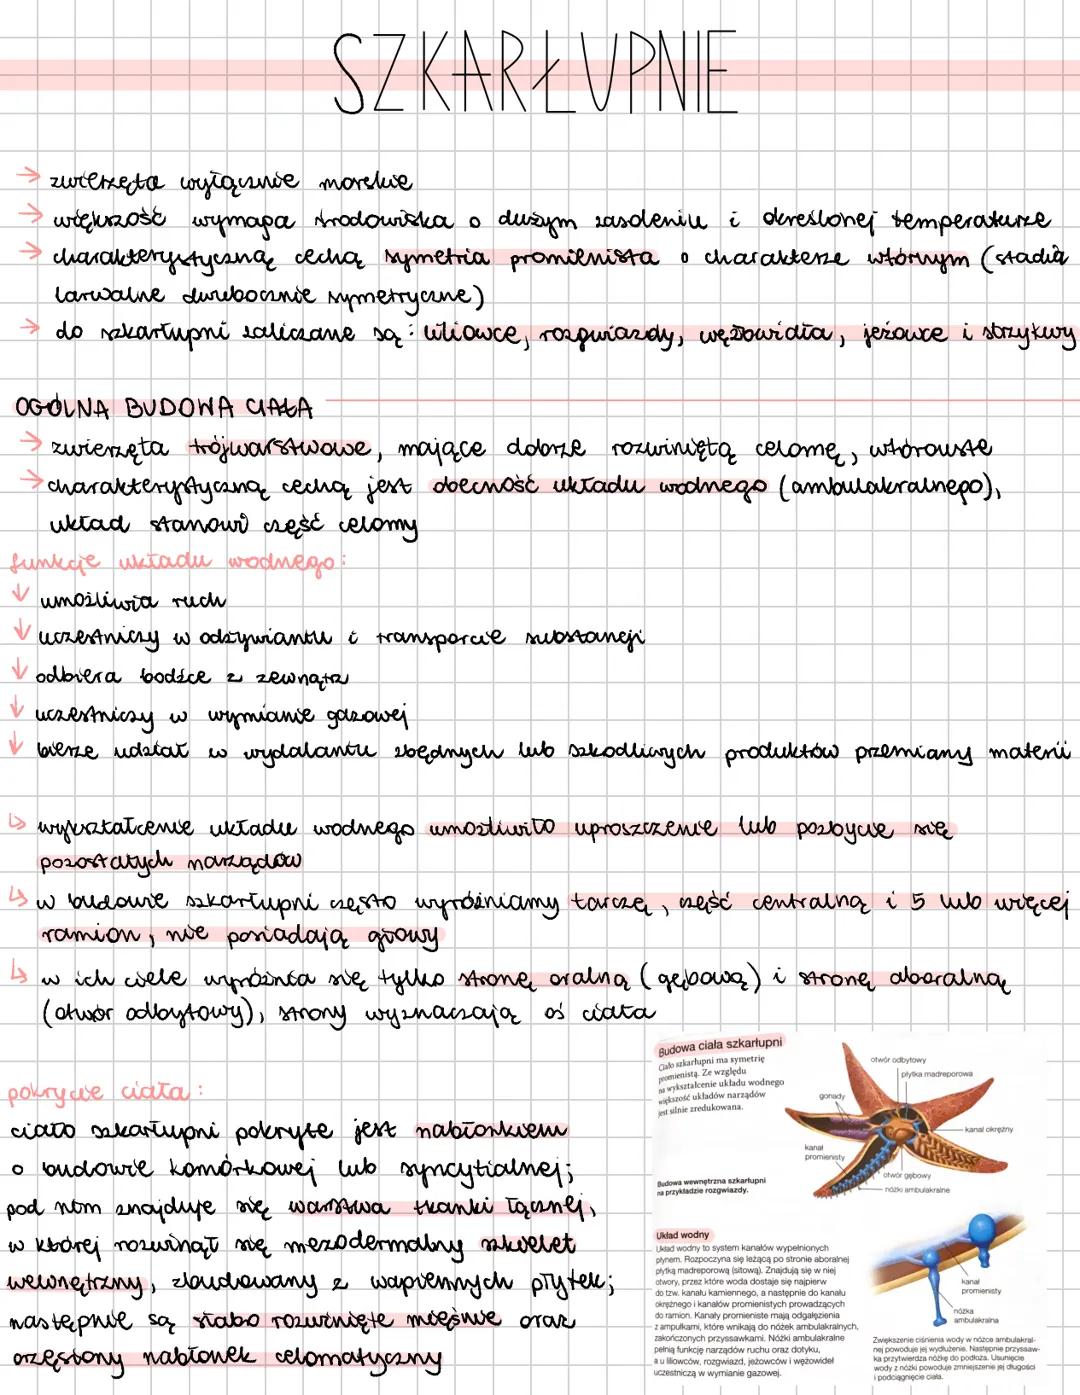 SZKARŁUPNIE
→ zwierzęta wyłącznie morskie
→ większość wymaga środowiska o dużym zasoleniu i określonej temperaturze
→ charakterystyczną cechą symetria promienista o charakterze wtórnym (stadia
larwalne dwubocznie symetryczne)
→ do szkarłupni zaliczane są: liliowce, rozgwiazdy, wężowidła, jeżowce i strzykwy
OGÓLNA BUDOWA CIAŁA
→ zwierzęta trójwarstwowe, mające dobrze rozwiniętą celomę, wtórouste
→ charakterystyczną cechą jest obecność układu wodnego (ambulakralnego),
układ stanowi część celomy
funkcje układu wodnego:
↓ umożliwia ruch
↓ uczestniczy w odżywianiu i transporcie substancji
↓ odbiera bodźce z zewnątrz
↓ uczestniczy w wymianie gazowej
↓ bierze udział w wydalaniu zbędnych lub szkodliwych produktów przemiany materii
↳ wykształcenie układu wodnego umożliwiło uproszczenie lub pozbycie się
pozostałych narządów
↳ w budowie szkarłupni często wyróżniamy tarczę, część centralną i 5 lub więcej
ramion, nie posiadają głowy
↳ w ich ciele wyróżnia się tylko stronę oralną (gębową) i stronę aboralną
(otwór odbytowy), strony wyznaczają oś ciała
pokrycie ciała:
ciało szkarłupni pokryte jest nabłonkiem
o budowie komórkowej lub syncytialnej;
pod nim znajduje się warstwa tkanki łącznej,
w której rozwinął się mezodermalny szkielet
wewnętrzny, zbudowany z wapiennych płytek;
następnie są słabo rozwinięte mięśnie oraz
orzęsiony nabłonek celomatyczny
Budowa ciała szkarłupni
Ciało szkarłupni ma symetrię
promienistą. Ze względu
na wykształcenie układu wodnego
większość układów narządów
jest silnie zredukowana.
otwór odbytowy
płytka madreporowa
gonady
kanał okrężny
kanał
promienisty
otwór gębowy
nóżki ambulakralne
Budowa wewnętrzna szkarłupni
na przykładzie rozgwiazdy.
Układ wodny
Układ wodny to system kanałów wypełnionych
płynem. Rozpoczyna się leżącą po stronie aboralnej
płytką madreporową (sitową). Znajdują się w niej
otwory, przez które woda dostaje się najpierw
do tzw. kanału kamiennego, a następnie do kanału
okrężnego i kanałów promienistych prowadzących
do ramion. Kanały promieniste mają odgałęzienia
z ampułkami, które wnikają do nóżek ambulakralnych,
zakończonych przyssawkami. Nóżki ambulakralne
pełnią funkcję narządów ruchu oraz dotyku,
a u liliowców, rozgwiazd, jeżowców i wężowideł
uczestniczą w wymianie gazowej.
kanał
promienisty
nóżka
ambulakralna
Zwiększenie ciśnienia wody w nóżce ambulakral-
nej powoduje jej wydłużenie. Następnie przyssaw-
ka przytwierdza nóżkę do podłoża. Usunięcie
wody z nóżki powoduje zmniejszenie jej długości
i podciągnięcie ciała.